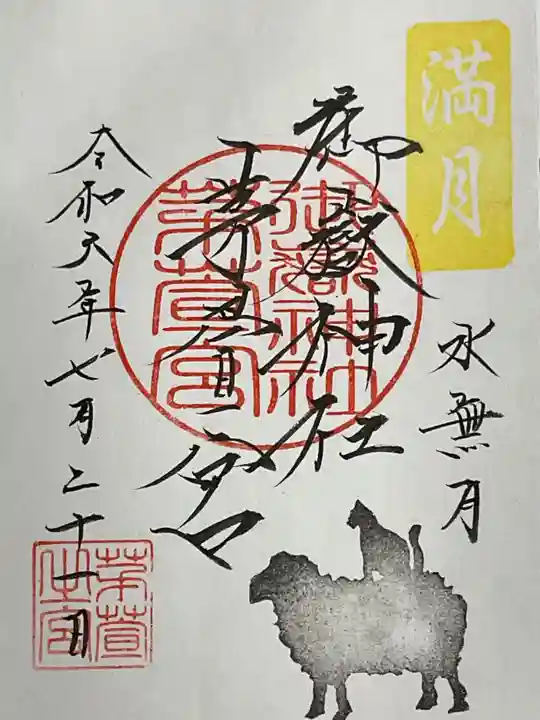 満月
水無月
御嶽神社
茅萱宮
令和六年七月二十一日
御嶽神社
茅萱宮
茅萱
之宮